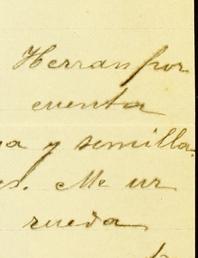 Herran por
cuenta
a y semilla
es. Me ur
rueda